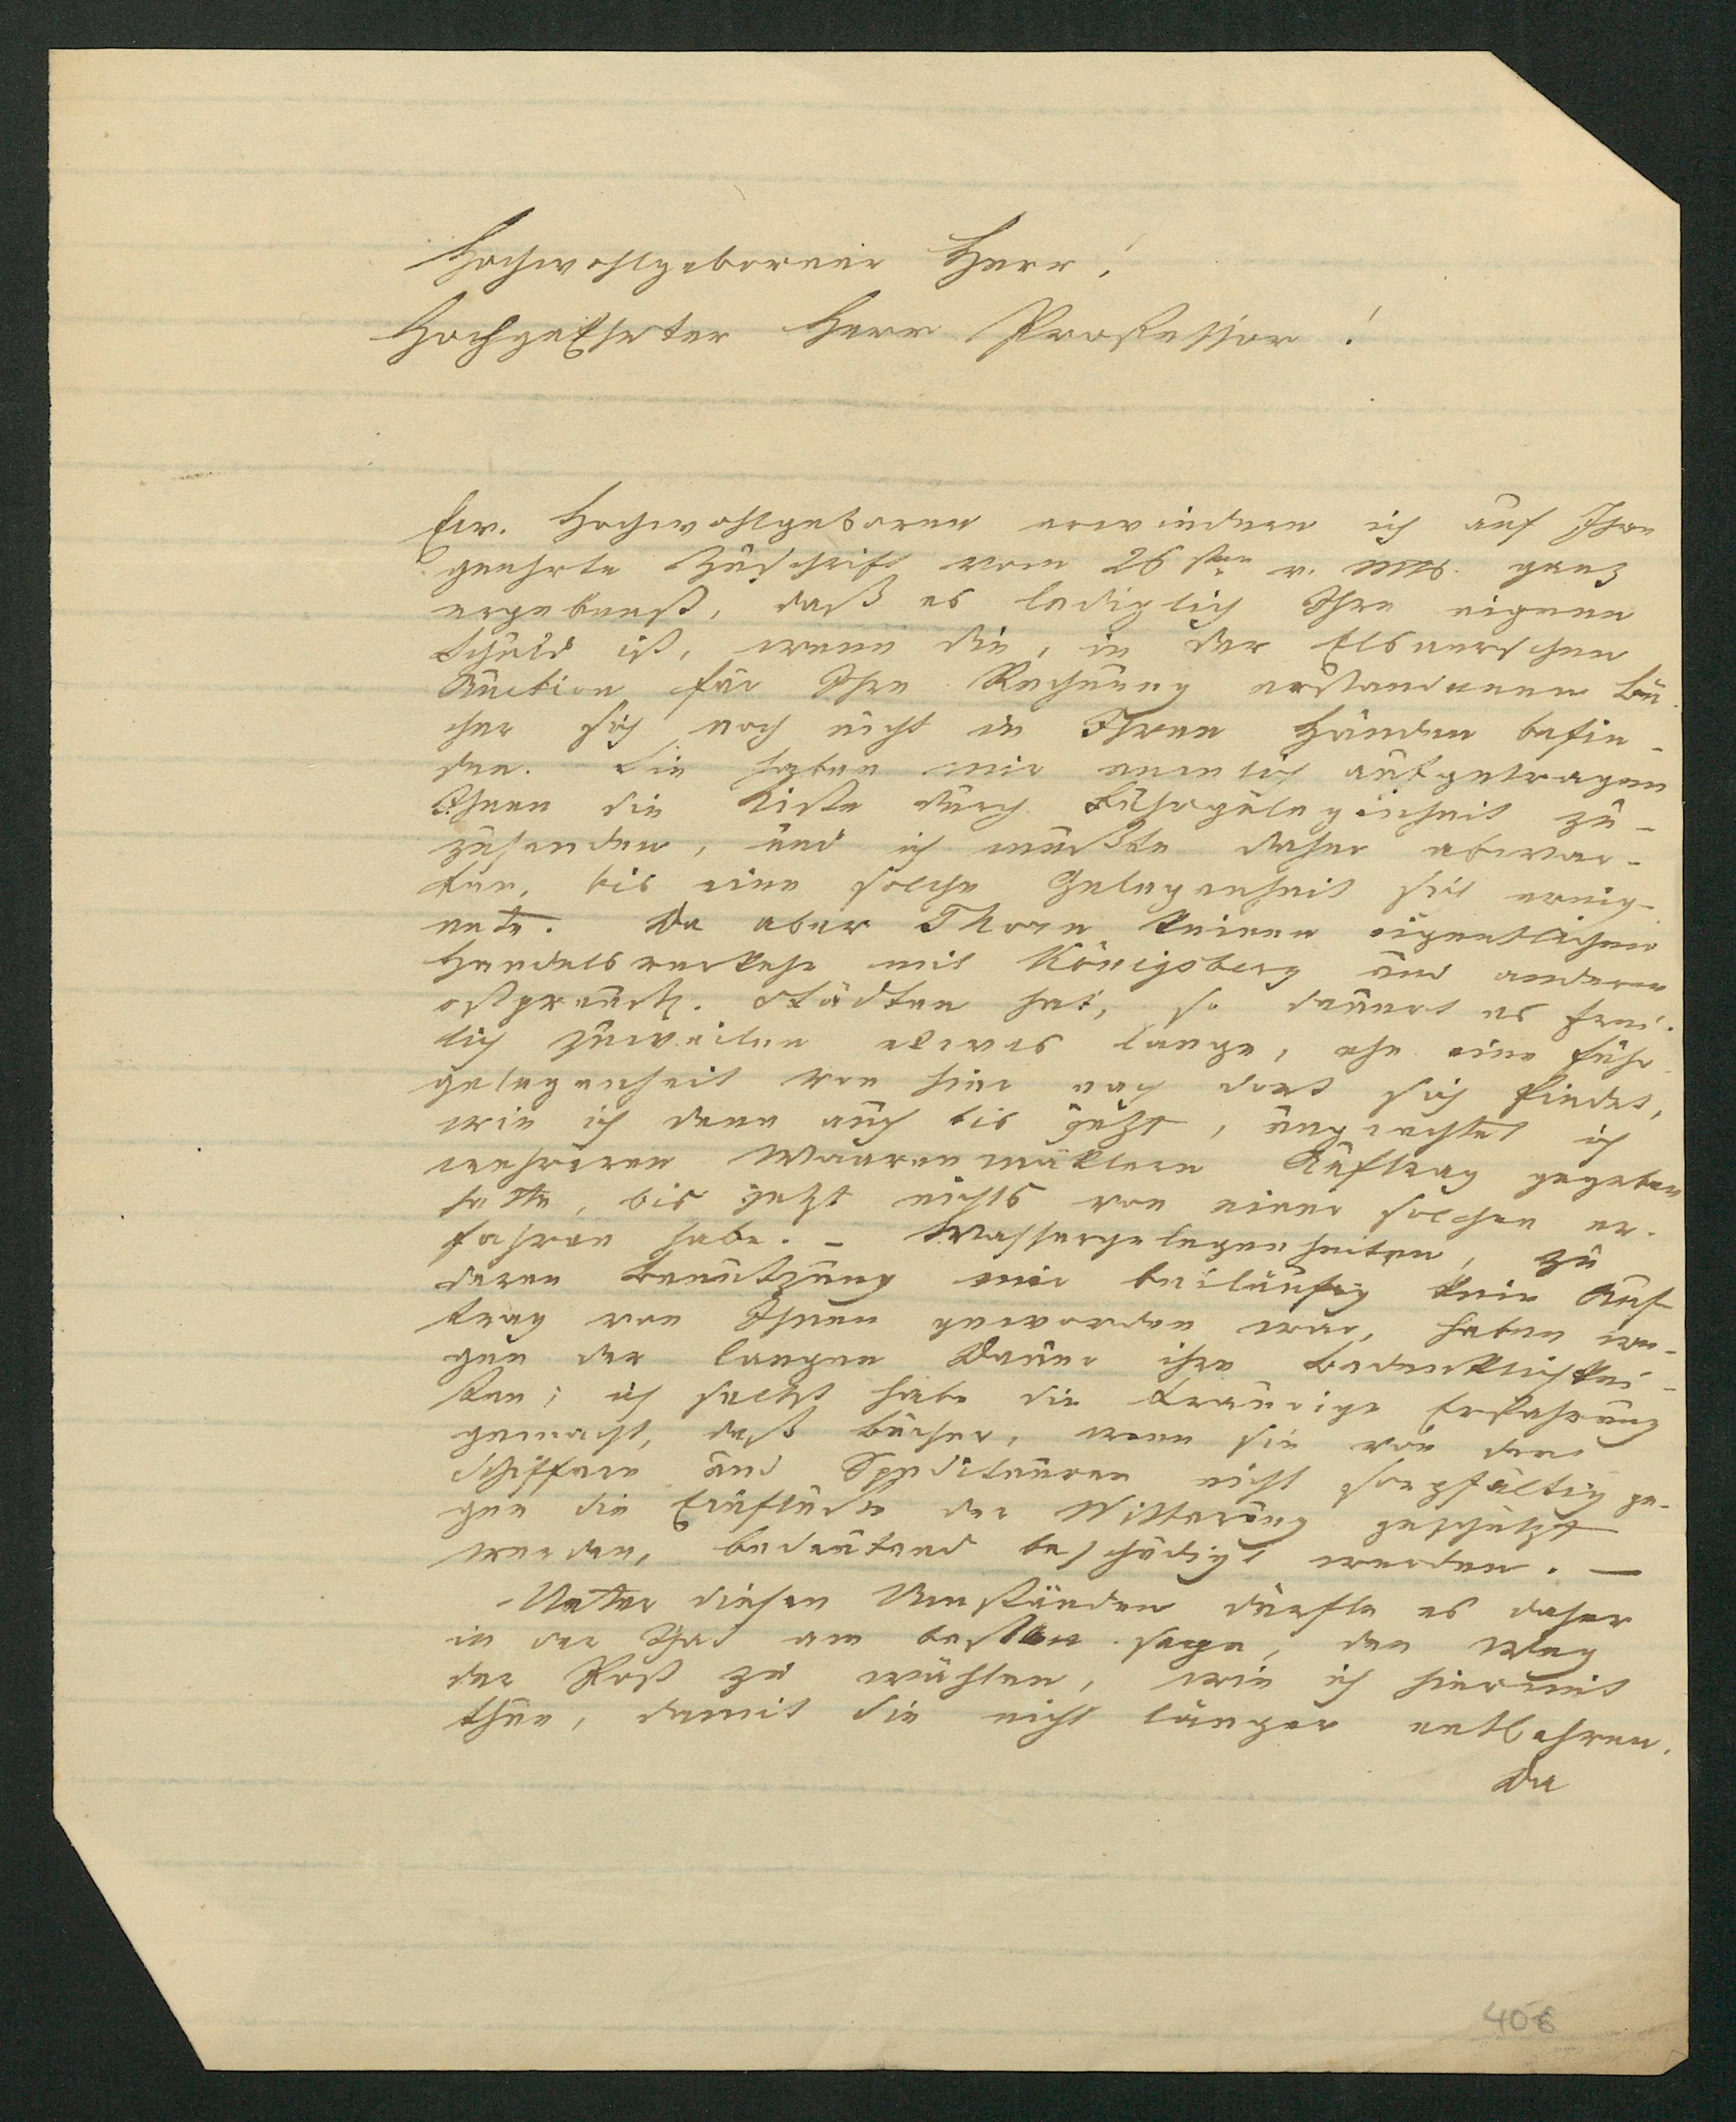 Hochwohlgeborner Herr!
Hochgeehrter Herr Professor!
Ew. Hochwohlgeboren erwiedere ich auf Ihre
geehrte Zuschrift vom 26sten v. Mts. ganz
ergebenst, daß es lediglich Ihre eigene
Schuld ist, wenn die, in der Elsnerschen
Auction für Ihre Rechnung erstandenen Bü-
cher sich noch nicht in Ihren Händen befin-
den. Sie haben mir nemlich aufgetragen
Ihnen die Kiste durch Fuhrgelegenheit zu-
zusenden, und ich mußte daher abwar-
ten, bis eine solche Gelegenheit sich ereig-
nete. Da aber Thorn keinen eigentlichen
Handelsverkehr mit Königsberg und anderen
ostpreuß. Städten hat, so dauert es frei-
lich zuweilen etwas lange, ehe eine Fuhr-
gelegenheit von hier nach dort sich findet,
wie ich denn auch bis jetzt, ungeachtet ich
mehreren Waarenmäklern Auftrag gegeben
hatte, bis jetzt nichts von einer solchen er-
fahren habe. – Wassergelegenheiten, zu
deren Benutzung mir beiläufig kein Auf-
trag von Ihnen geworden war, haben we-
gen der langen Dauer ihre Bedenklichkei-
ten; ich selbst habe die traurige Erfahrung
gemacht, daß Bücher, wenn sie von den
Schiffern und Spediteuren nicht sorgfältig ge-
gen die Einflüsse der Witterung geschützt
werden, bedeutend beschädigt werden. —
Unter diesen Umständen dürfte es daher
in der That am besten seyn, den Weg
der Post zu wählen, wie ich hiermit
thue, damit Sie nicht länger entbehren.
Da
406